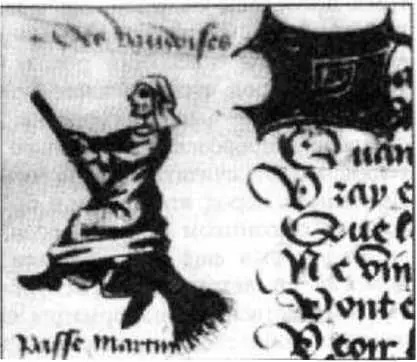 Des vaudoises
Quan
Vray e
Que l
Ne vin
Vont e
Veoir
Passe Martin